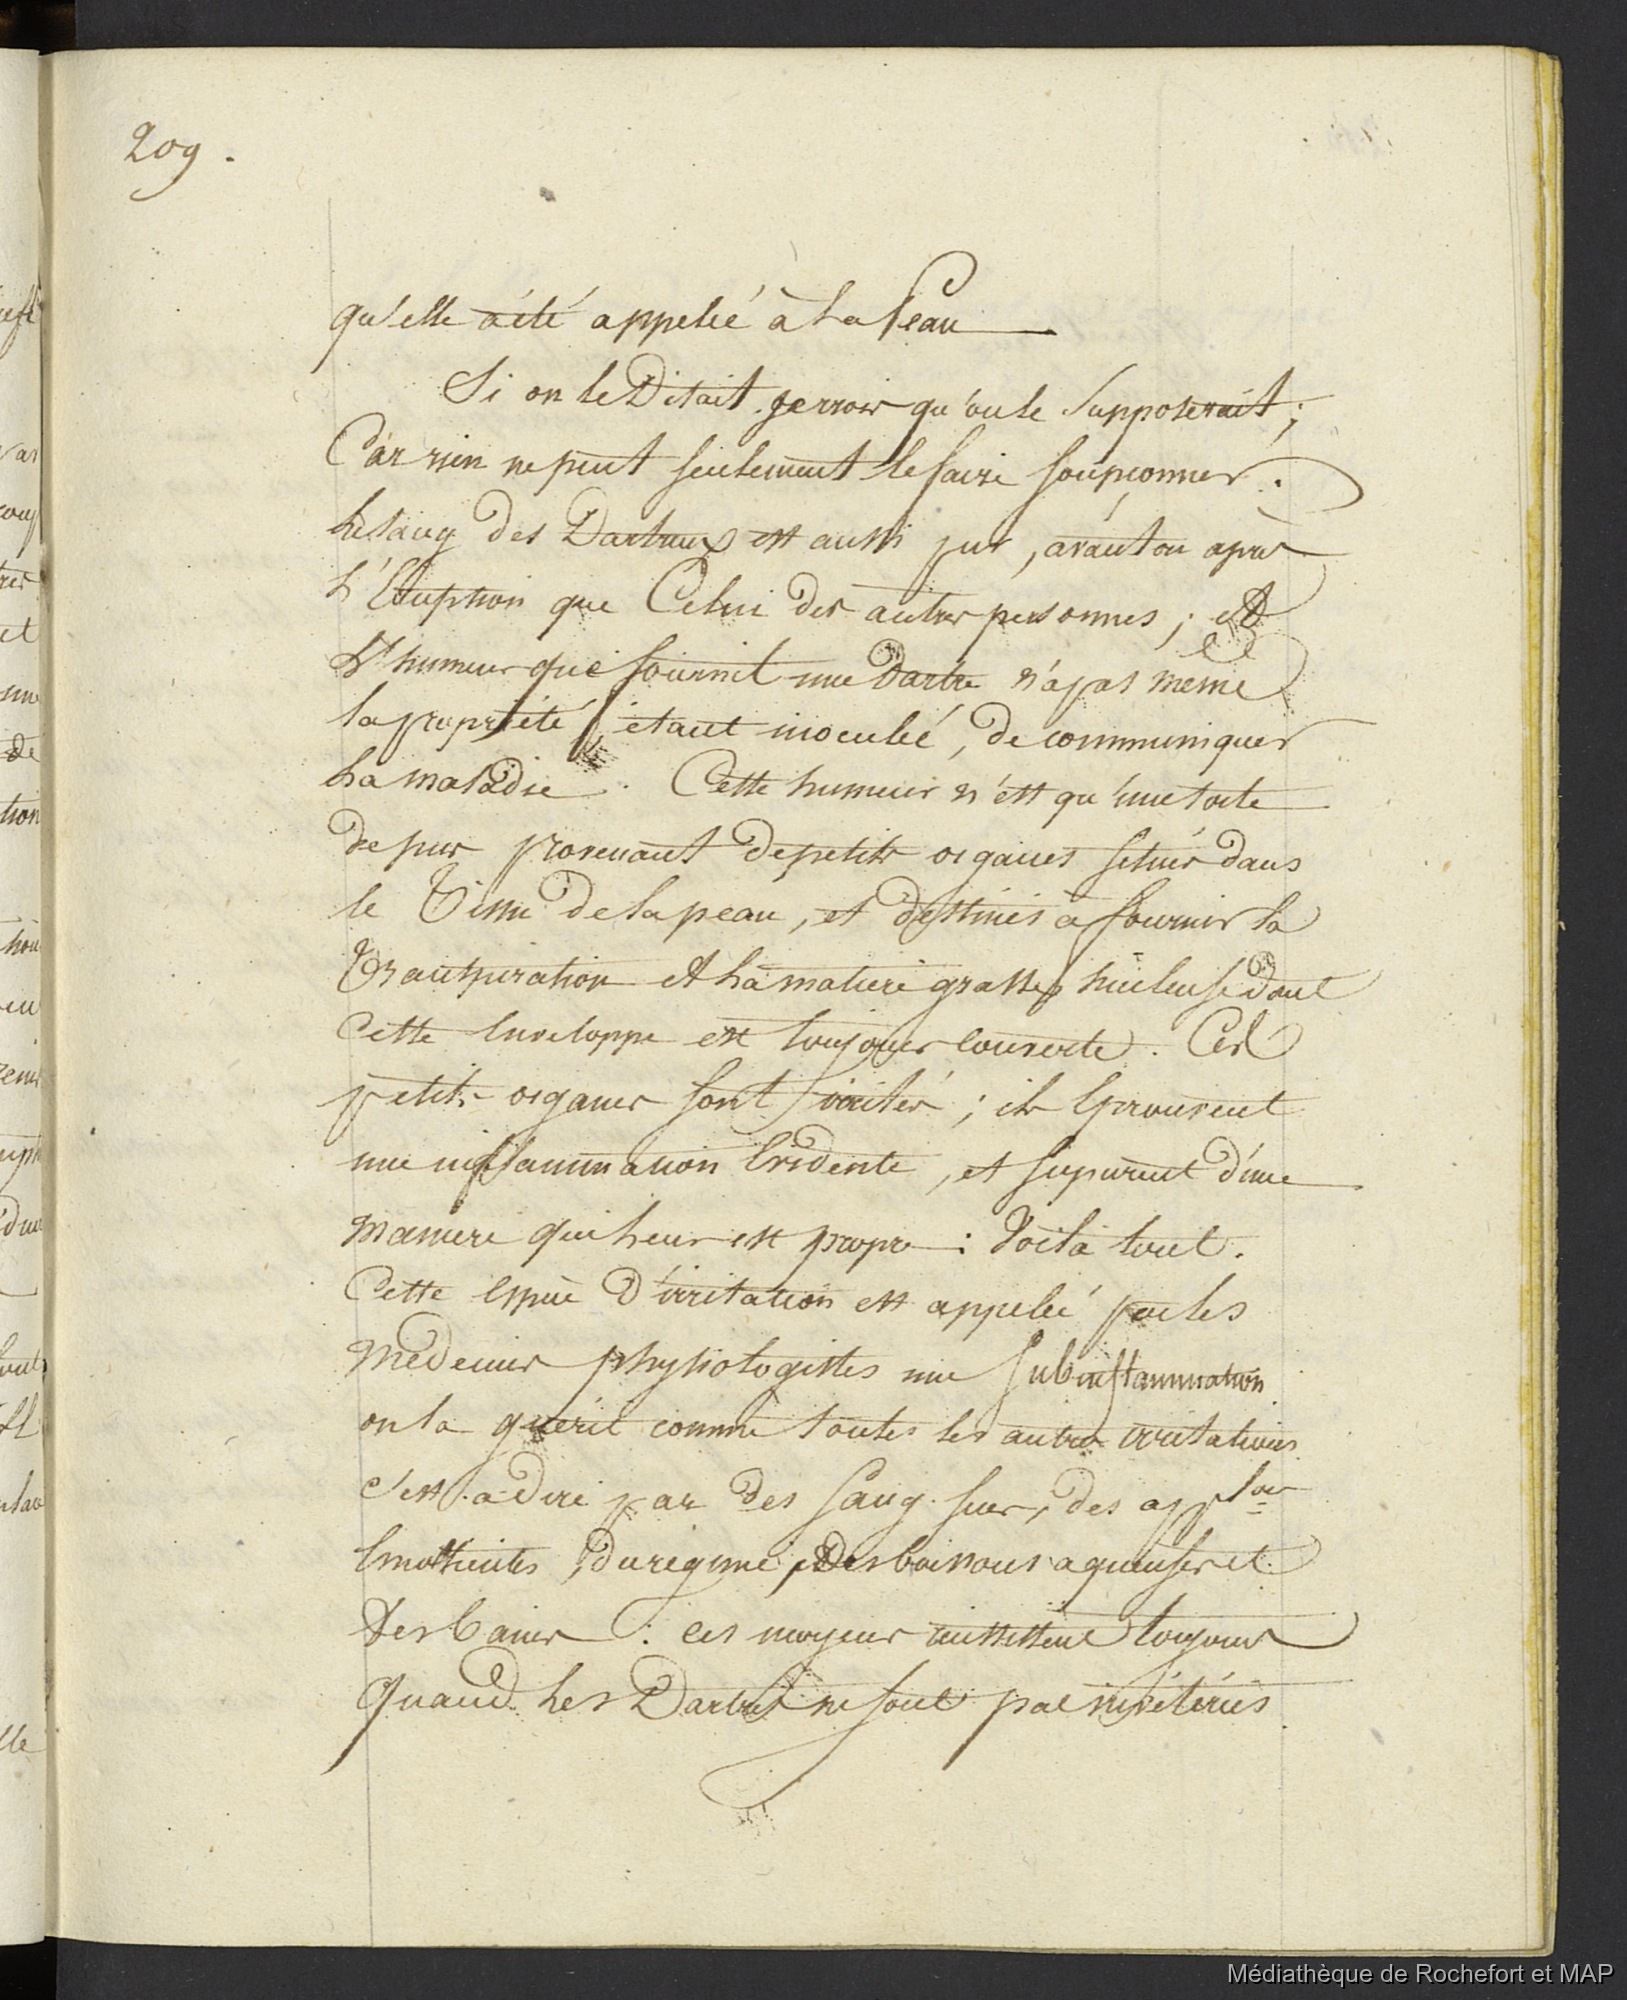 209.
qu'elle a été appelée à la Peau
Si on le Disait je crois qu'on le Supposerait;
Car rien ne peut seulement le faire soupçonner.
le sang des Dartreux est aussi pur, avant ou après
l'Eruption que Celui des autres personnes; et
l'humeur que fournit une Dartre n'a pas même
la propriété, étant inoculée, de communiquer
la maladie. Cette humeur n'est qu'une sorte
de pus provenant de petits organes situés dans
le Tissu de la peau, et destinés à fournir la
Transpiration et la matière grasse, huileuse dont
Cette Enveloppe est toujours couverte. Ces
petits organes sont irrités; ils Eprouvent
une inflammation Evidente, et supurent d'une
manière qui leur est propre: Voilà tout.
Cette Espèce D'irritation est appelée par les
Médecins physiologistes une Subinflammation
on la guérit comme toutes les autres irritations
c'est-à-dire par des sang-sues, des appl.ons
Emollientes, du régime, Des boissons aqueuses et
Des bains: ces moyens toujours
quand les Dartres ne sont pas invétérées
Médiathèque de Rochefort et MAP